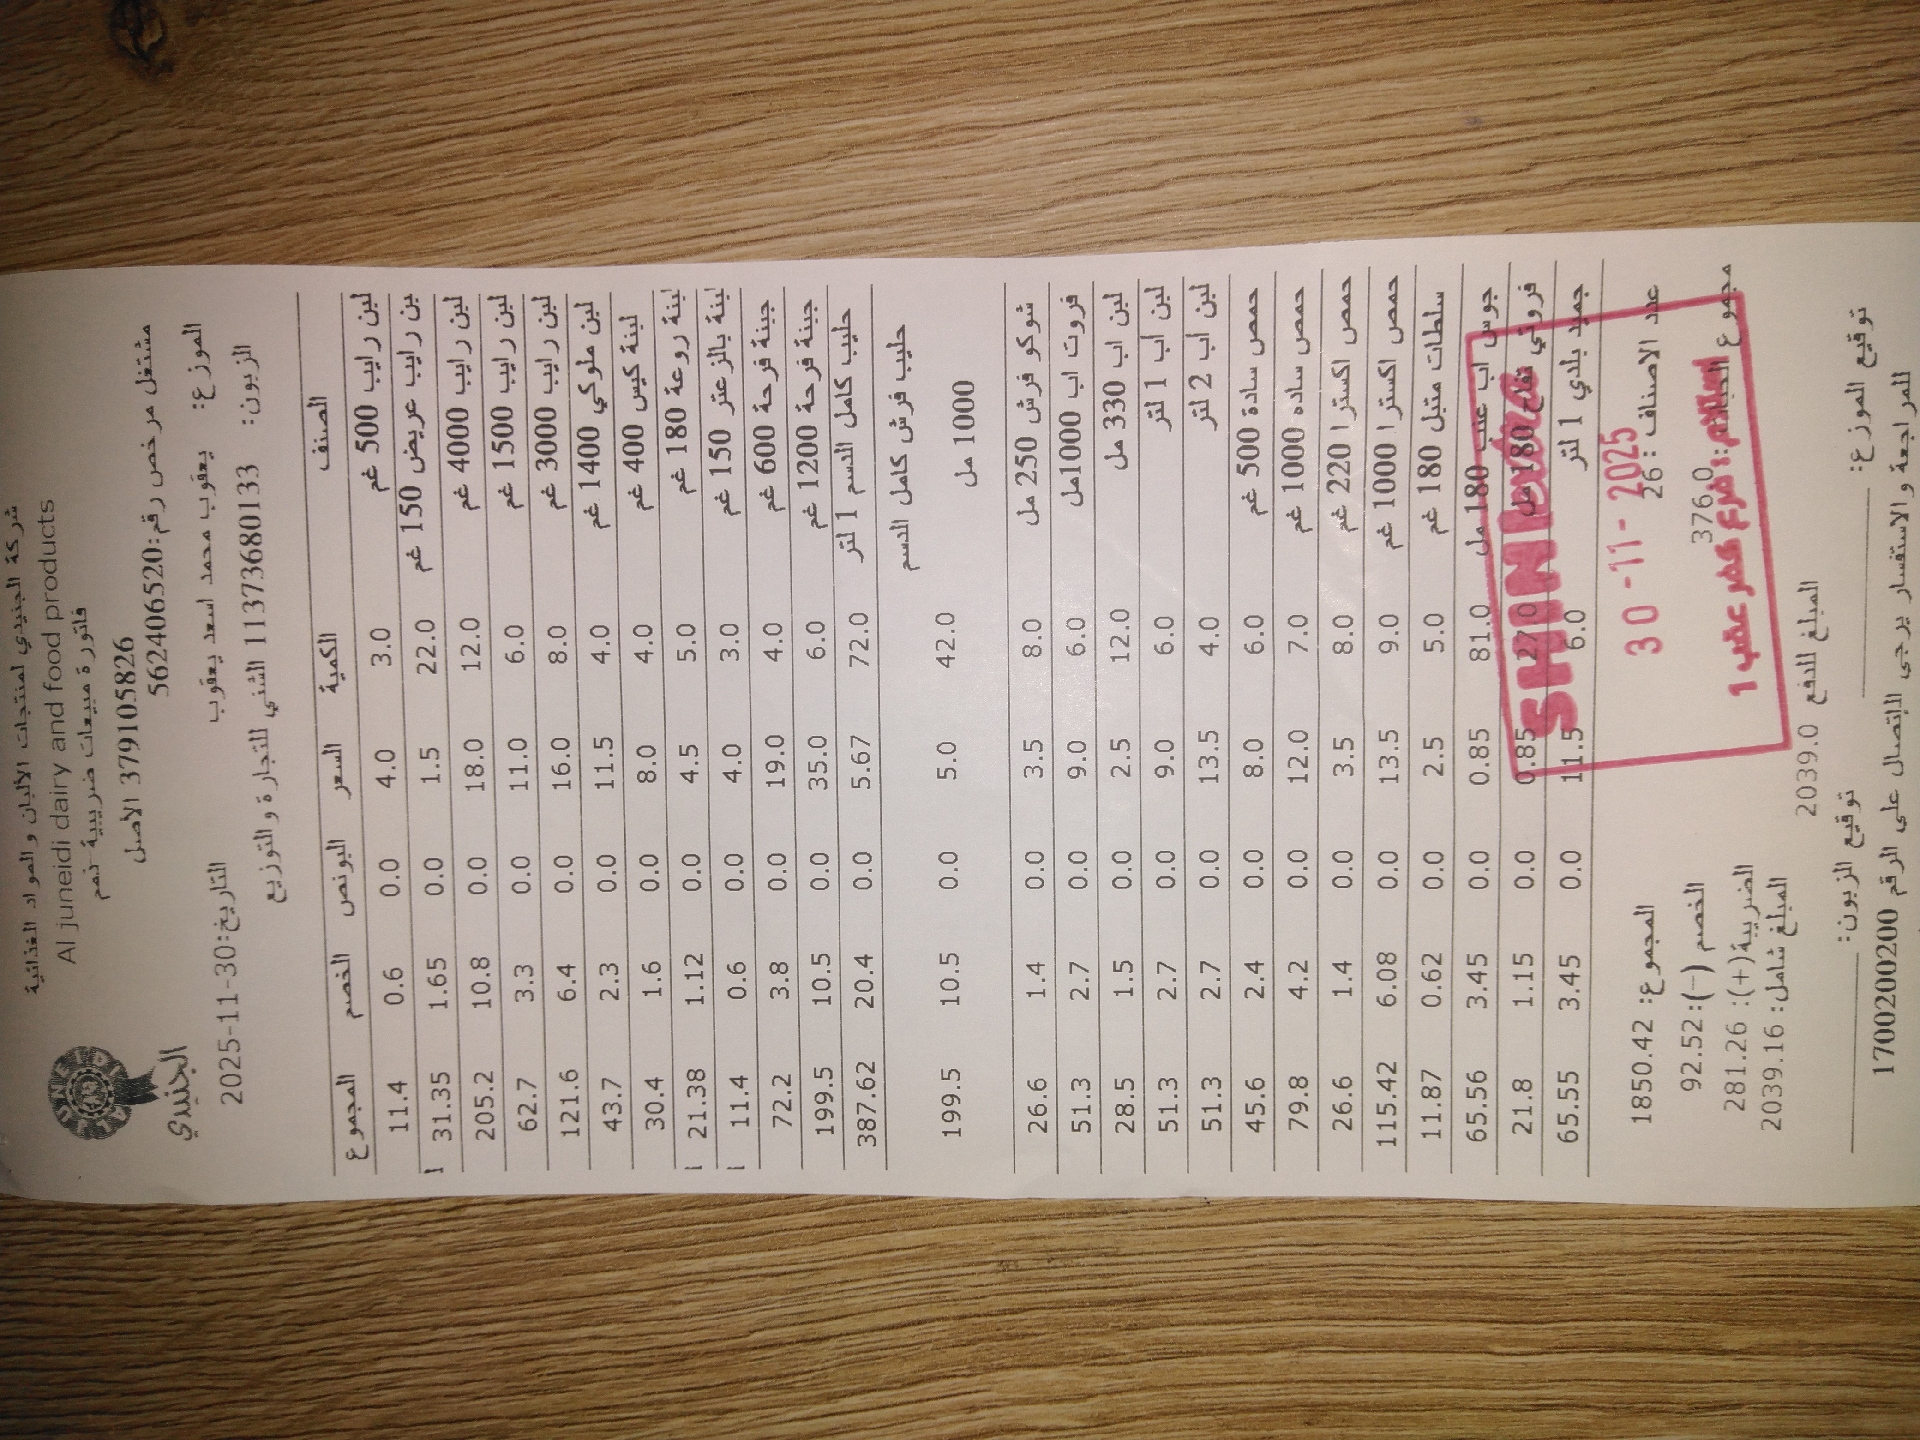 شركة الجنيدي لمنتجات الالبان والمواد الغذائية
Al juneidi dairy and food products
فاتورة مبيعات ضريبية نهم
3791105826 الاصل
مشتغل مرخص رقم:562406520
الجنيدي
الموزع: يعقوب محمد اسعد يعقوب
التاريخ:30-11-2025
الزبون: 1137368013 الشني للتجارة والتوزيع
الصنف الكمية السعر البونص الخصم المجموع
لبن رايب 500 غم 3.0 4.0 0.0 0.6 11.4
لبن رايب عريض 150 غم 22.0 1.5 0.0 1.65 31.35
لبن رايب 4000 غم 12.0 18.0 0.0 10.8 205.2
لبن رايب 1500 غم 6.0 11.0 0.0 3.3 62.7
لبن رايب 3000 غم 8.0 16.0 0.0 6.4 121.6
لبن ملوكي 1400 غم 4.0 11.5 0.0 2.3 43.7
لبنة كيس 400 غم 4.0 8.0 0.0 1.6 30.4
لبنة روعة 180 غم 5.0 4.5 0.0 1.12 21.38
لبنة بالزعتر 150 غم 3.0 4.0 0.0 0.6 11.4
جبنة فرحة 600 غم 4.0 19.0 0.0 3.8 72.2
جبنة فرحة 1200 غم 6.0 35.0 0.0 10.5 199.5
حليب كامل الدسم 1 لتر 72.0 5.67 0.0 20.4 387.62
حليب فرش كامل الدسم
1000 مل 42.0 5.0 0.0 10.5 199.5
شوكو فرش 250 مل 8.0 3.5 0.0 1.4 26.6
فروت اب 1000مل 6.0 9.0 0.0 2.7 51.3
لبن اب 330 مل 12.0 2.5 0.0 1.5 28.5
لبن اب 1 لتر 6.0 9.0 0.0 2.7 51.3
لبن اب 2 لتر 4.0 13.5 0.0 2.7 51.3
حمص سادة 500 غم 6.0 8.0 0.0 2.4 45.6
حمص ساده 1000 غم 7.0 12.0 0.0 4.2 79.8
حمص اكسترا 220 غم 8.0 3.5 0.0 1.4 26.6
حمص اكسترا 1000 غم 9.0 13.5 0.0 6.08 115.42
سلطات متبل 180 غم 5.0 2.5 0.0 0.62 11.87
جوس اب عنب 180 مل 81.0 0.85 0.0 3.45 65.56
فروتي تفاح 180 مل 27.0 0.85 0.0 1.15 21.8
جميد بلدي 1 لتر 6.0 11.5 0.0 3.45 65.55
SHINI
30-11-2025
استلام: فرع كفر عقب 1
عدد الاصناف: 26
المجموع: 1850.42
مجموع الحبات: 376.0
الخصم (-): 92.52
الضريبة(+): 281.26
المبلغ شامل: 2039.16
المبلغ للدفع 2039.0
توقيع الموزع:
توقيع الزبون:
للمراجعة والاستفسار يرجى الاتصال على الرقم 1700200200